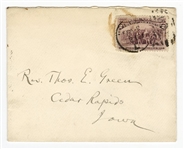 Rev. Thos. E. Green
Cedar Rapids
Iowa